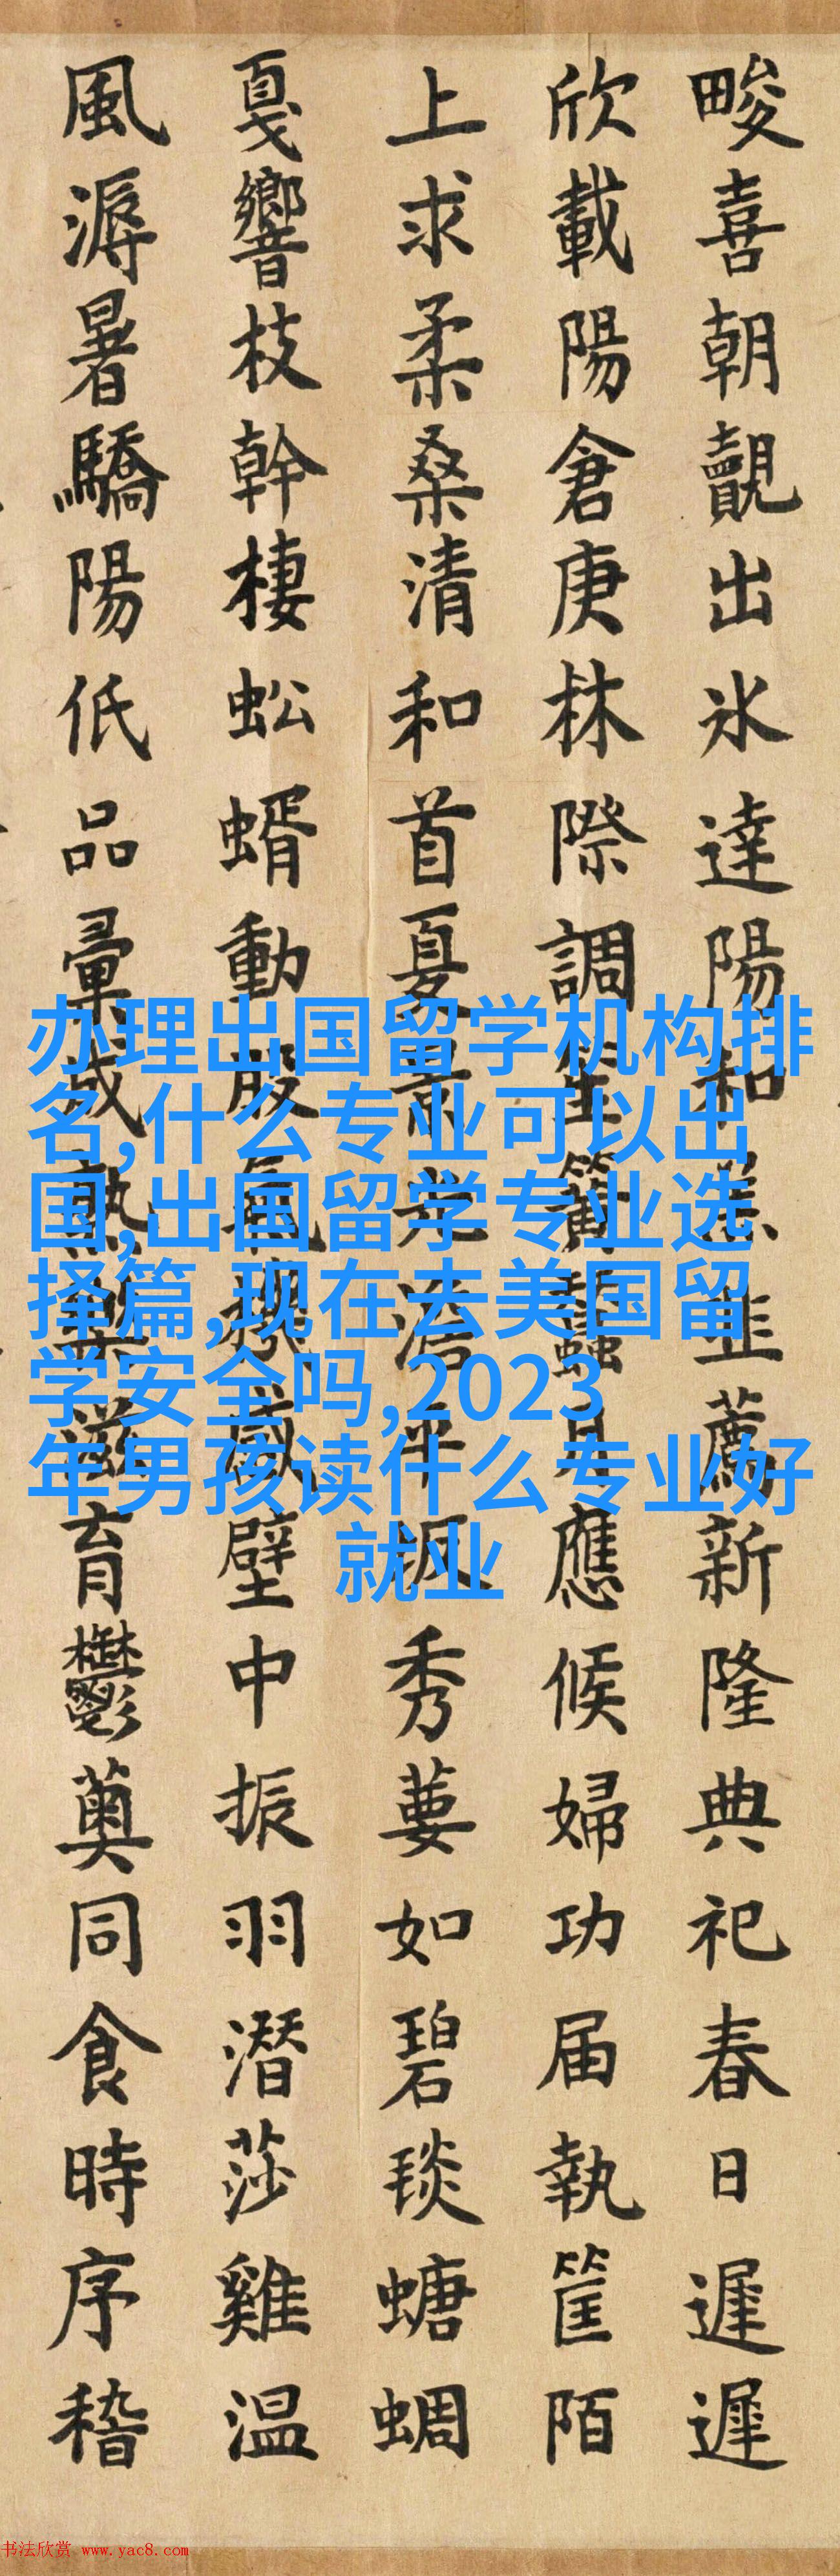 畯喜朝覿出氷達陽和羔韭薦新隆典祀春日遲遲
欣載陽倉庚林際調笙簧蠶月應候婦功届執筐陌
上求柔桑清和首夏景光澹平坂秀葽如碧琰螗蜩
戛響枝幹棲蚣蝑動股氣機感壁中振羽潛莎雞温
風溽暑驕陽低品彙咸熟樂滋育鬱薁同食時序稽
办理出国留学机构排
名,什么专业可以出
国,出国留学专业选
择篇,现在去美国留
学安全吗,2023
年男孩读什么专业好
就业
书法欣赏 www.yac8.com